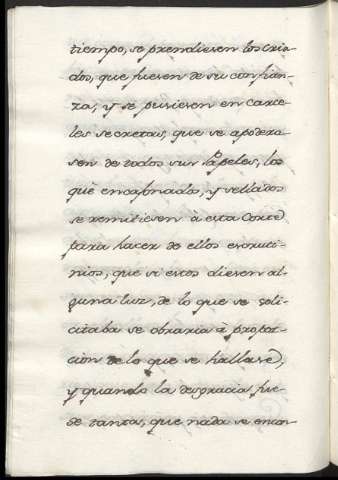 tiempo, se prendiesen los cria-
dos, que fuesen de su confian-
za, y se pusiesen en carce-
les secretas, que se apodera-
sen de todos sus Papeles, los
que encajonados, y sellados
se remitiesen à esta Corte
para hacer de ellos escruti-
nios, que si estos diesen al-
guna luz, de lo que se soli-
citaba se obraria à propor-
cion de lo que se hallase,
y quando la desgracia fue-
se tanta, que nada se encon-